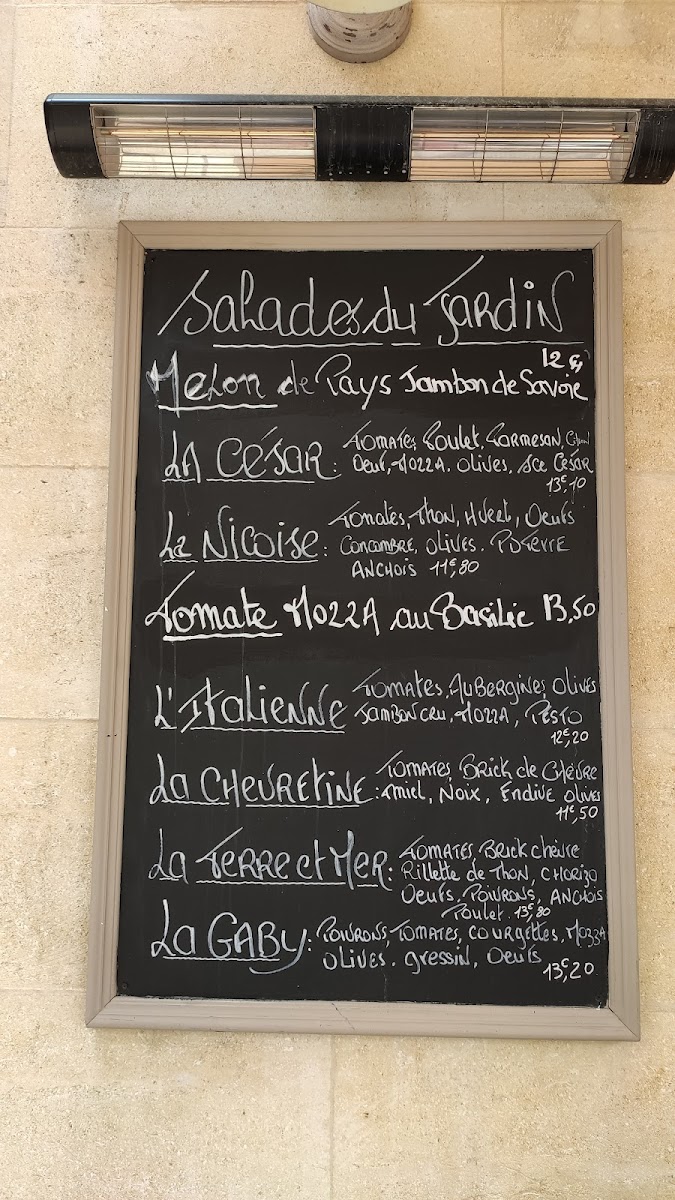 Salades du Jardin
12 €
Melon de Pays Jambon de Savoie
LA CÉSAR : Tomates, Poulet, Parmesan,
Oeuf, Mozza. Olives, Sce César
13€,10
La Niçoise : Tomates, Thon, H.Vert, Oeufs
Concombre, Olives. Poivre
Anchois 11€,80
Tomate Mozza au Basilic 13,50
L'Italienne Tomates, Aubergines, Olives
Jambon cru, Mozza, Pesto
12€,20
La Chevretine : Tomates, Brick de Chèvre
miel, Noix, Endive Olives
11€,50
La Terre et Mer : Tomates, Brick chèvre
Rillette de Thon, Chorizo
Oeufs. Poivrons, Anchois
Poulet. 13€80
La GABY : Poivrons, Tomates, courgettes, Mozza
Olives. gressin, Oeufs
13€,20